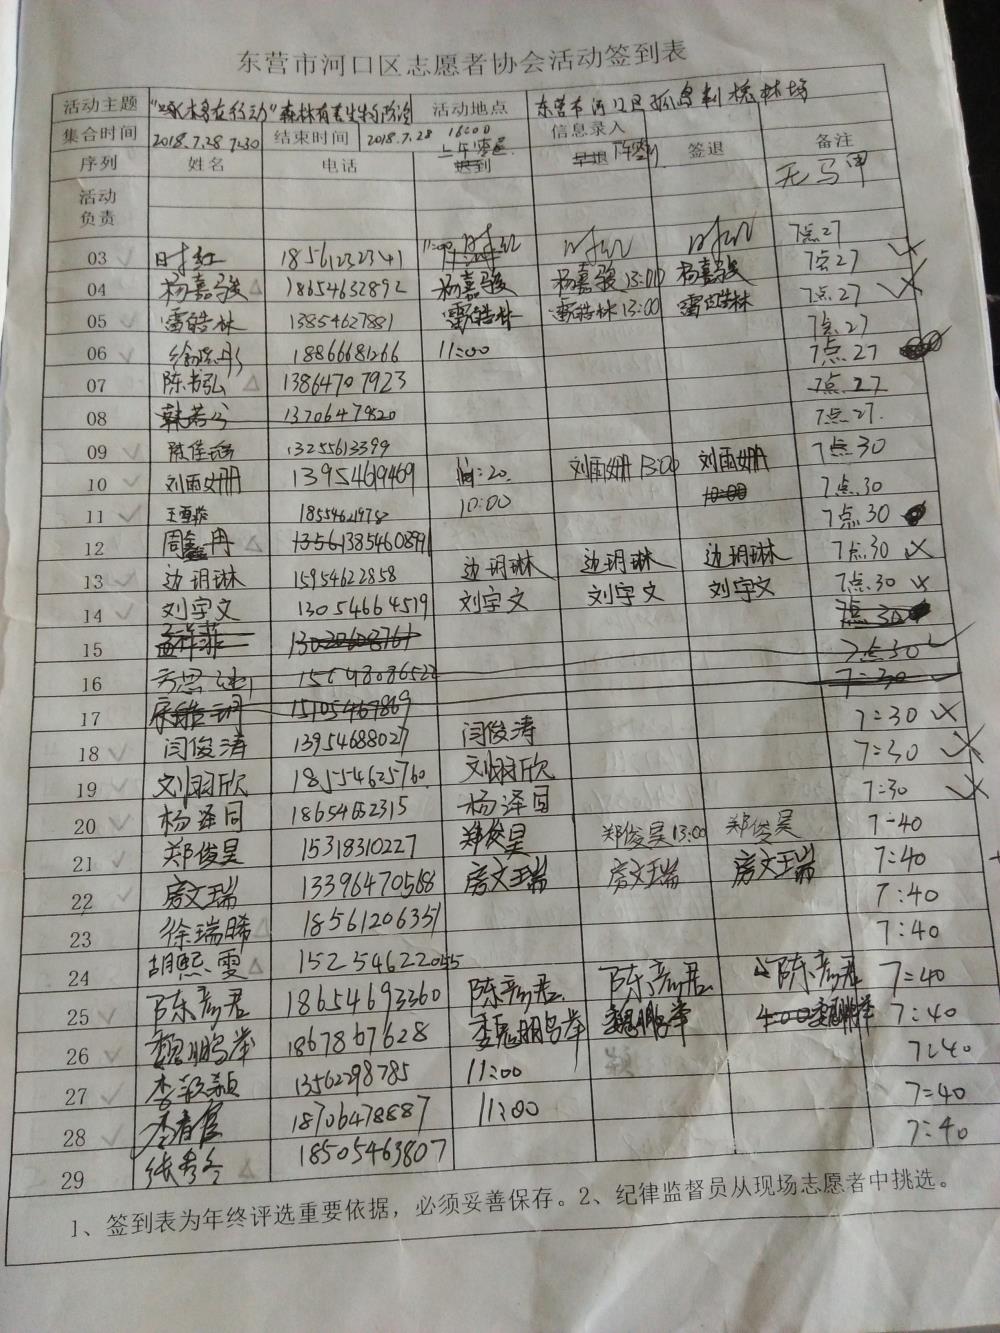 东营市河口区志愿者协会活动签到表
活动主题 "啄木鸟在行动"森林有害生物防治 活动地点 东营市河口区孤岛刺槐林场
集合时间 2018.7.28 7:30 结束时间 2018.7.28 16:00 信息录入 备注
序列 姓名 电话 上午签退 迟到 早退 下午签到 签退 无马甲
活动
负责
7点27
03 时红 18561232341 11:00 时红 时红 时红 7点27
04 杨嘉骏 18654632892 杨嘉骏 杨嘉骏 13:00 杨嘉骏 7点27
05 雷皓林 13854627881 雷皓林 雷皓林 13:00 雷皓林 7点27
06 18866681266 11:00 7点27
07 陈书弘 13864707923 7点27
08 韩若兮 13706479820 7点27
09 陈佳 13255613399 7点30
10 刘雨姗 13954696469 20 刘雨姗 13:00 刘雨姗 7点30
11 18554621978 10:00 10:00 7点30
12 周鑫冉 7点30
13 边玥琳 15954622858 边玥琳 边玥琳 边玥琳 7点30
14 刘宇文 13054664519 刘宇文 刘宇文 刘宇文 7点30
15 7点30
16 7:30
17 15105469869 7:30
18 闫俊涛 13954688027 闫俊涛 7:30
19 刘羽欣 18554625760 刘羽欣 7:30
20 杨泽同 18654652315 杨泽同 7:40
21 郑俊昊 15318310227 郑俊昊 郑俊昊 13:00 郑俊昊 7:40
22 房文瑞 13396470568 房文瑞 房文瑞 房文瑞 7:40
23 徐瑞晞 18561206351 7:40
24 胡熙雯 7:40
25 陈彦君 18654693360 陈彦君 陈彦君 陈彦君 7:40
26 魏鹏举 1867867628 魏鹏举 魏鹏举 4:00 魏鹏举 7:40
27 李颖颖 13562298785 11:00 7:40
28 18706478887 11:00 7:40
29 18505463807
1、签到表为年终评选重要依据，必须妥善保存。2、纪律监督员从现场志愿者中挑选。